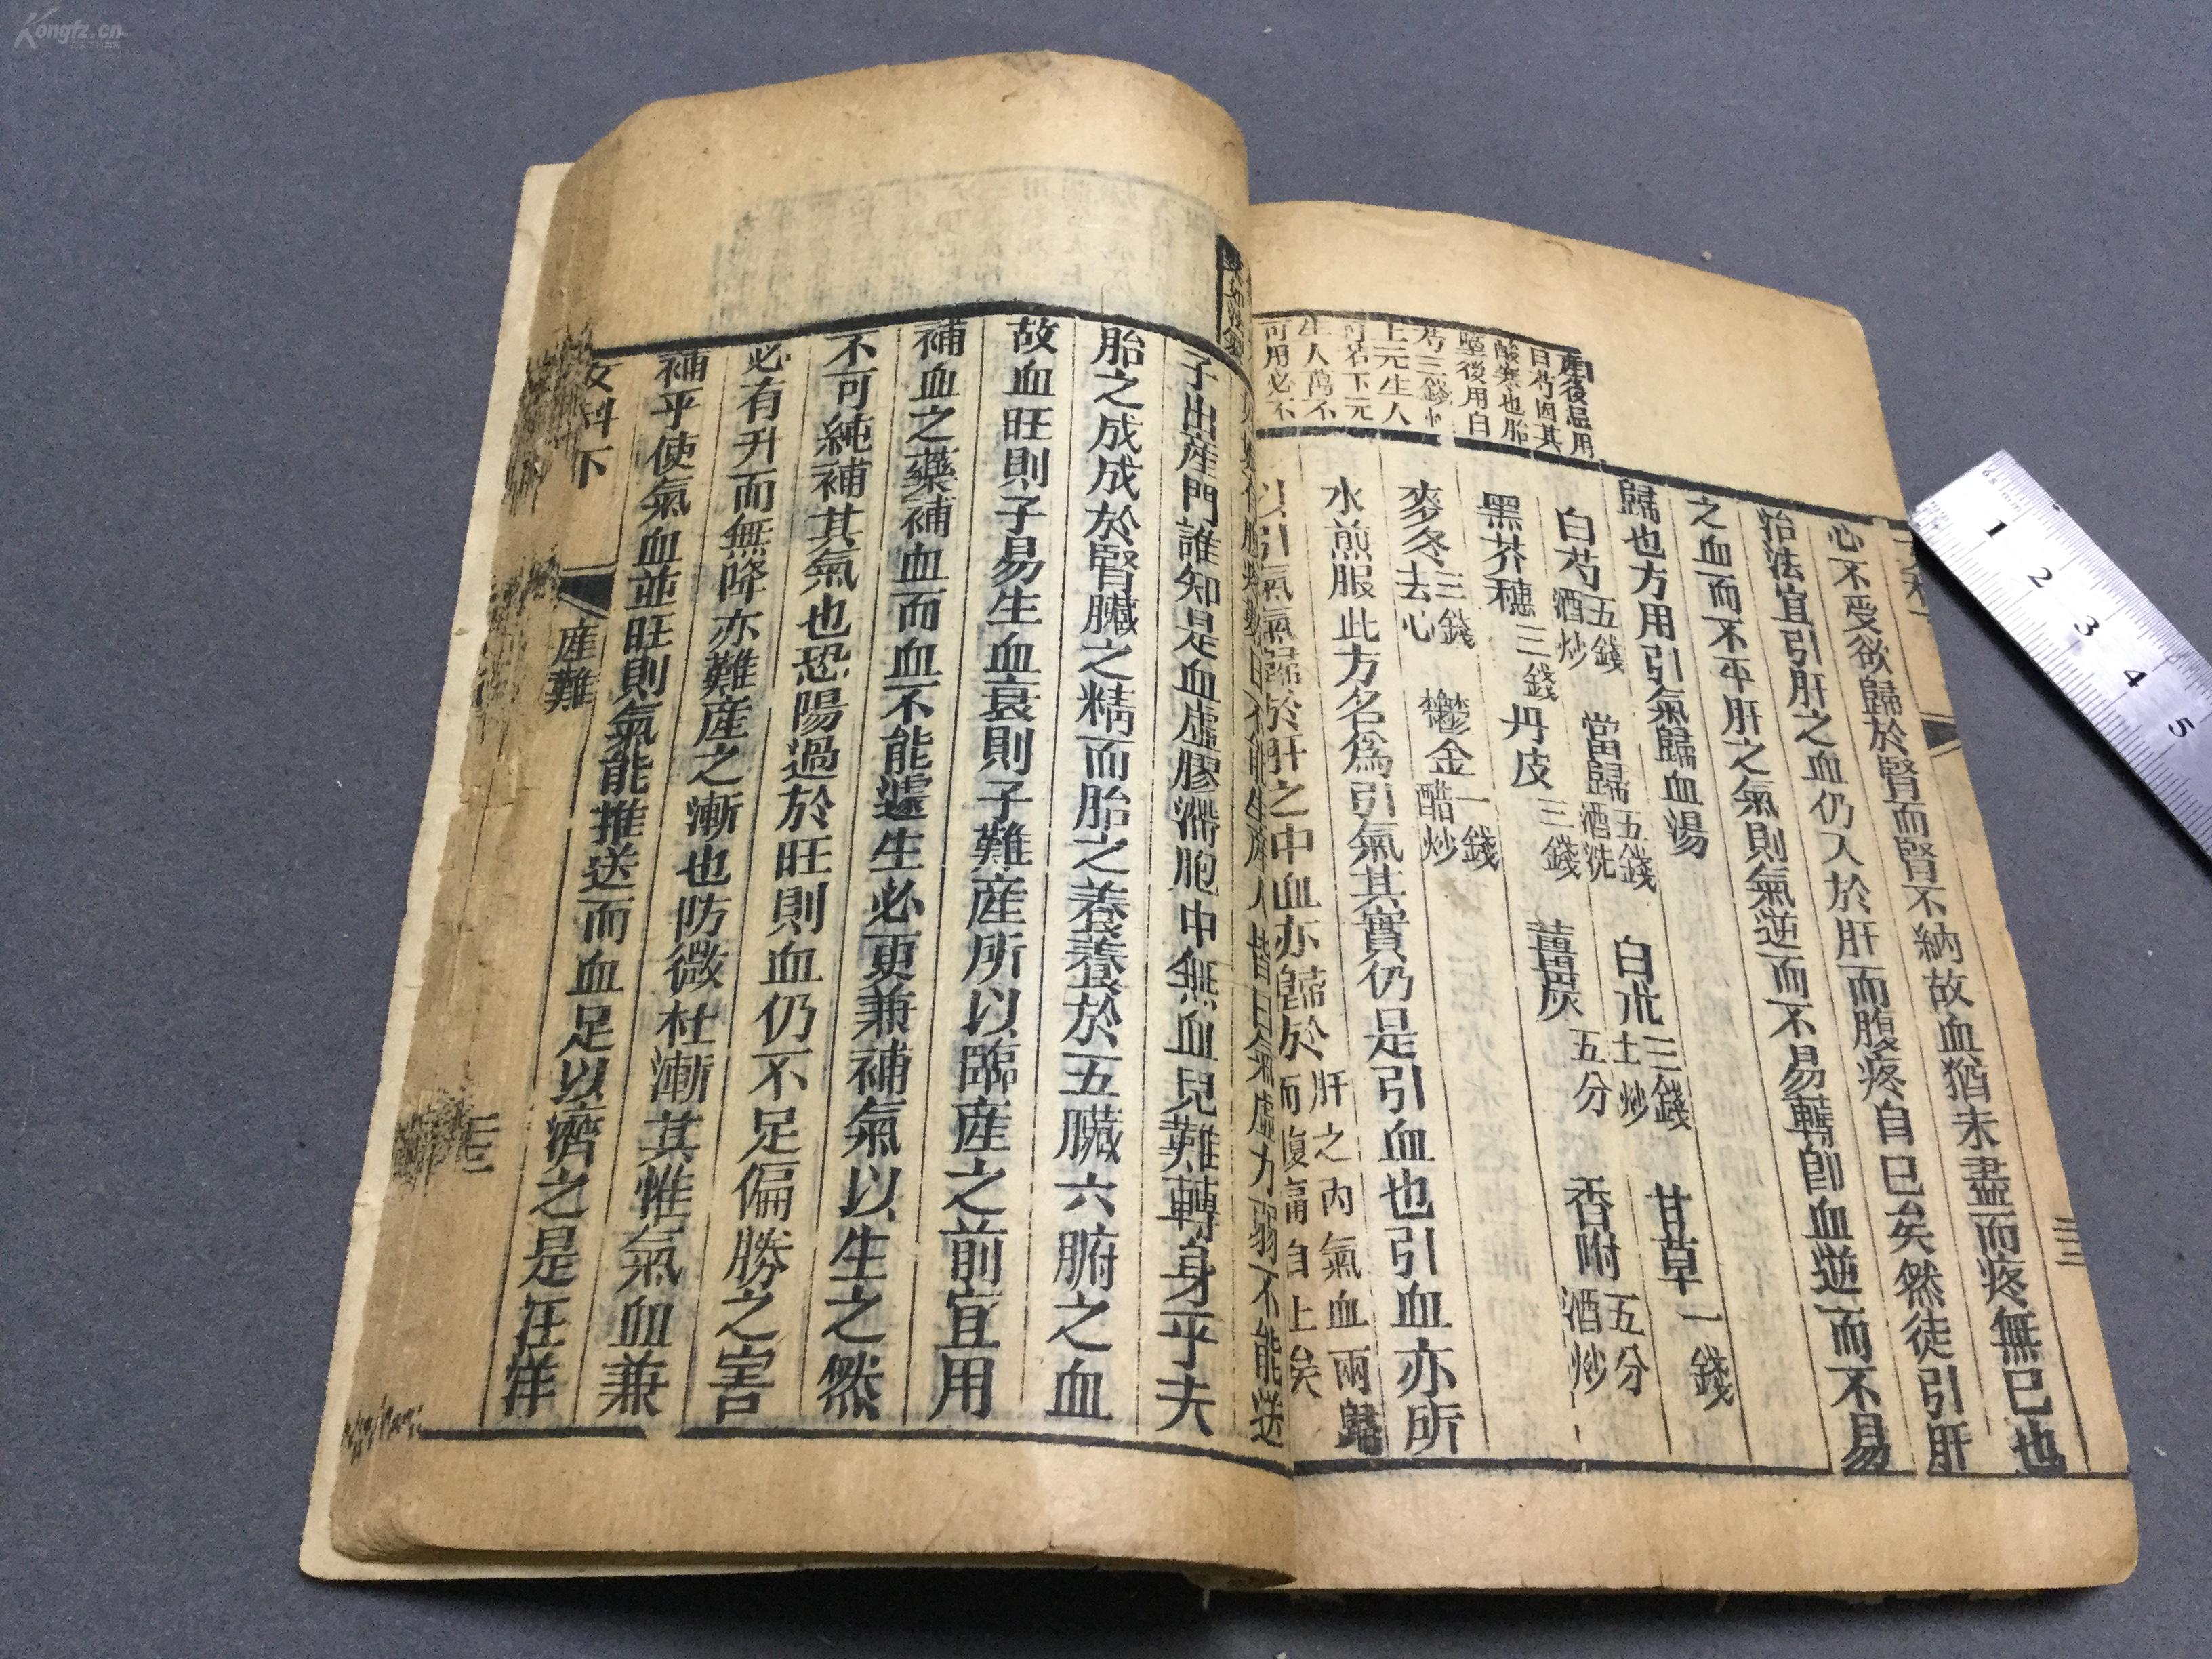 心不受欲歸於腎而腎不納故血猶未盡而疼無已也
治法宜引肝之血仍入於肝而腹疼自已矣然徒引肝
之血而不平肝之氣則氣逆而不易轉卽血逆而不易
歸也方用引氣歸血湯
白芍五錢酒炒 當歸五錢酒洗 白朮三錢土炒 甘草一錢
黑芥穗三錢 丹皮三錢 薑炭五分 香附五分酒炒
麥冬三錢去心 鬱金一錢醋炒
水煎服此方名爲引氣其實仍是引血也引血亦所
以引氣氣歸於肝之中血亦歸於肝之內氣血兩歸
而腹痛自止矣
產後忌用
白芍因其
酸寒也胎
墮後用白
芍三錢
上元生人
可若下元
生人萬不
可用必不
子出產門誰知是血虛膠滯胞中無血兒難轉身乎夫
胎之成成於腎臟之精而胎之養養於五臟六腑之血
故血旺則子易生血衰則子難產所以臨產之前宜用
補血之藥補血而血不能遽生必更兼補氣以生之然
不可純補其氣也恐陽過於旺則血仍不足偏勝之害
必有升而無降亦難產之漸也防微杜漸其惟氣血兼
補乎使氣血並旺則氣能推送而血足以濟之是汪洋
女科下 產難
Kongfz.cn
1 2 3 4 5